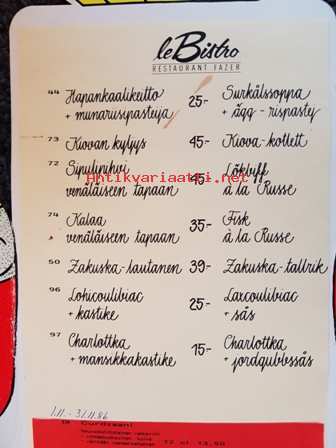 le Bistro
RESTAURANT FAZER
44 Hapankaalikeitto 25- Surkålssoppa
+ munariisipasteija + ägg-rispastej
73 Kiovan kyljys 45- Kiova-kotlett
72 Sipulipihvi 45- Lökbiff
venäläiseen tapaan à la Russe
Antikvariaatti.net
74 Kalaa 35- Fisk
venäläiseen tapaan à la Russe
50 Zakuska-lautanen 39- Zakuska-tallrik
96 Lohicoulibiac 25- Laxcoulibiac
+ kastike + sås
97 Charlottka 15- Charlottka
+ mansikkakastike + jordgubbssås
1.11.-31.11.86
Gurdzaani
12 cl 13,50